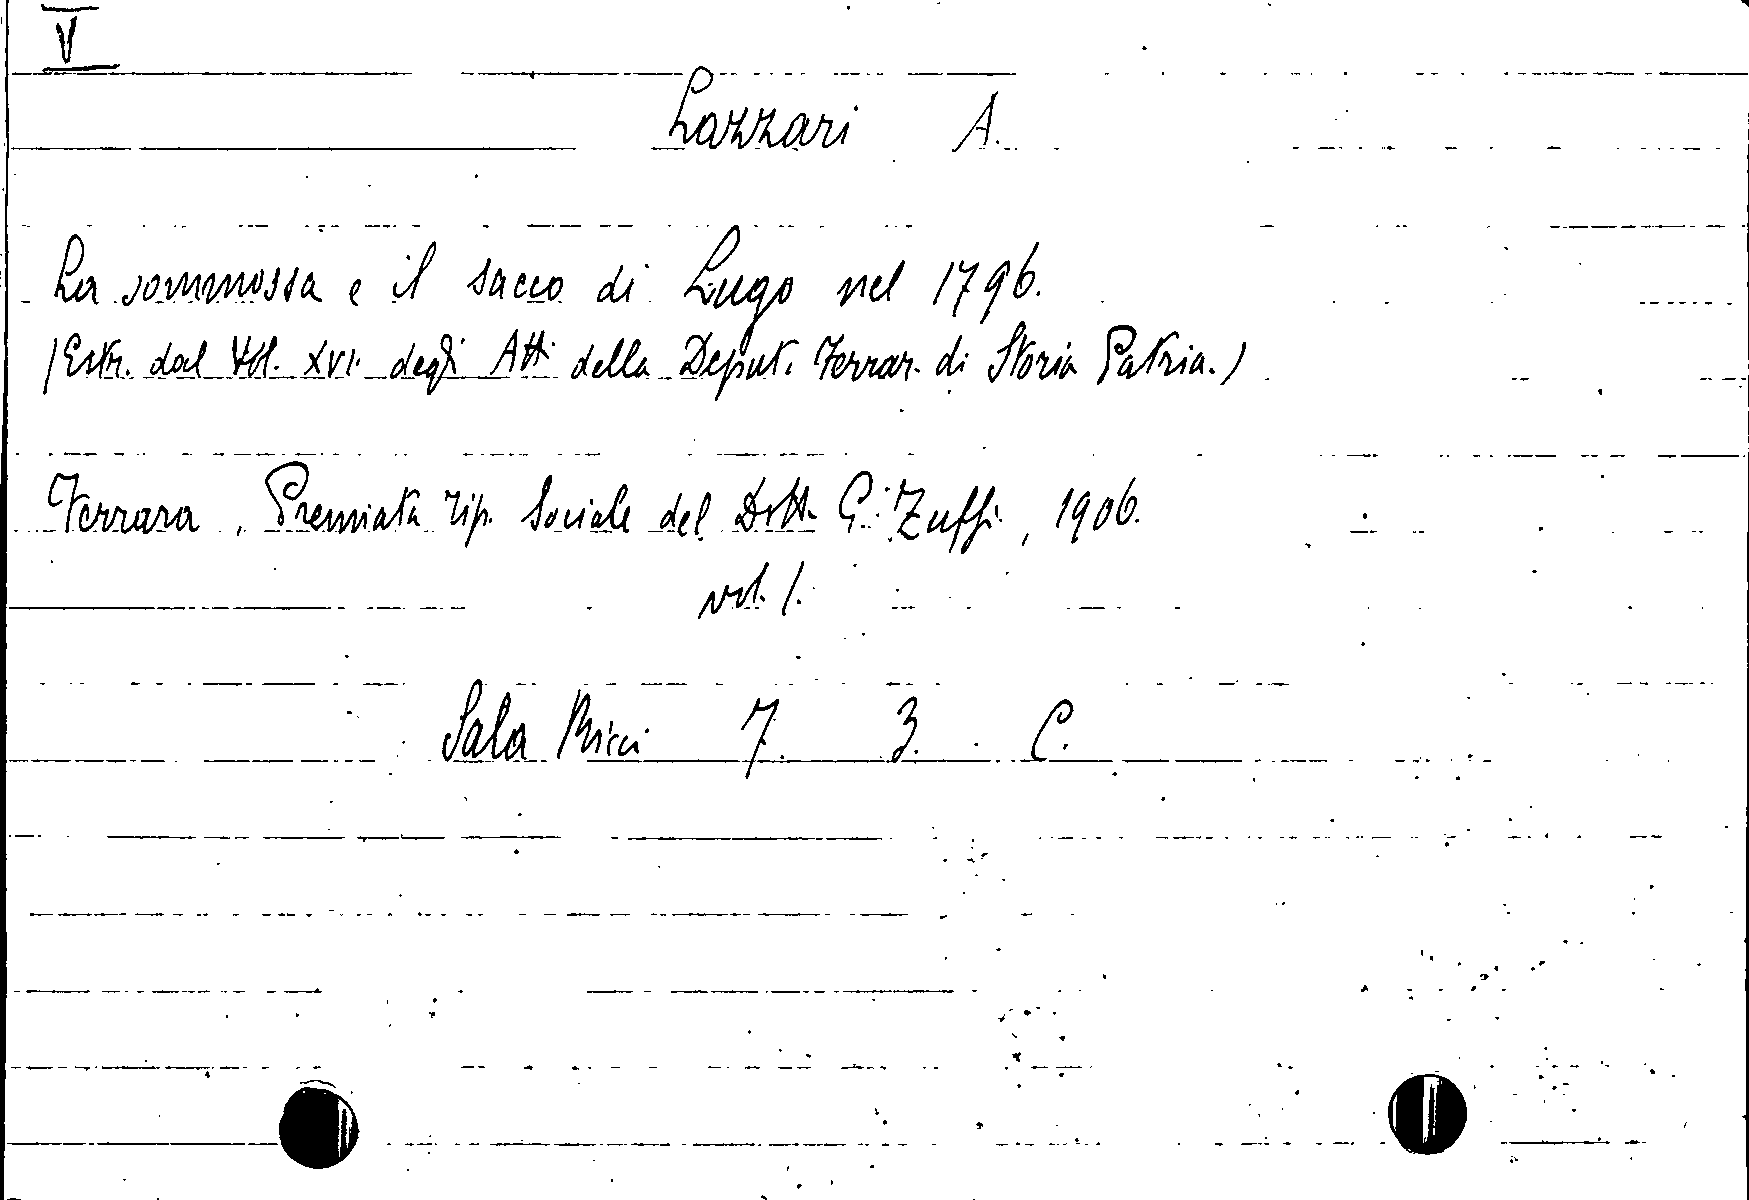 V
Lazzari A.
La sommossa e il sacco di Lugo nel 1796.
(Estr. dal Vol. XVI. degli Atti della Deput. Ferrar. di Storia Patria.)
Ferrara, Premiata Tip. Sociale del Dott. G. Zuffi, 1906.
vol. 1.
Sala Ricci 7. 3. C.